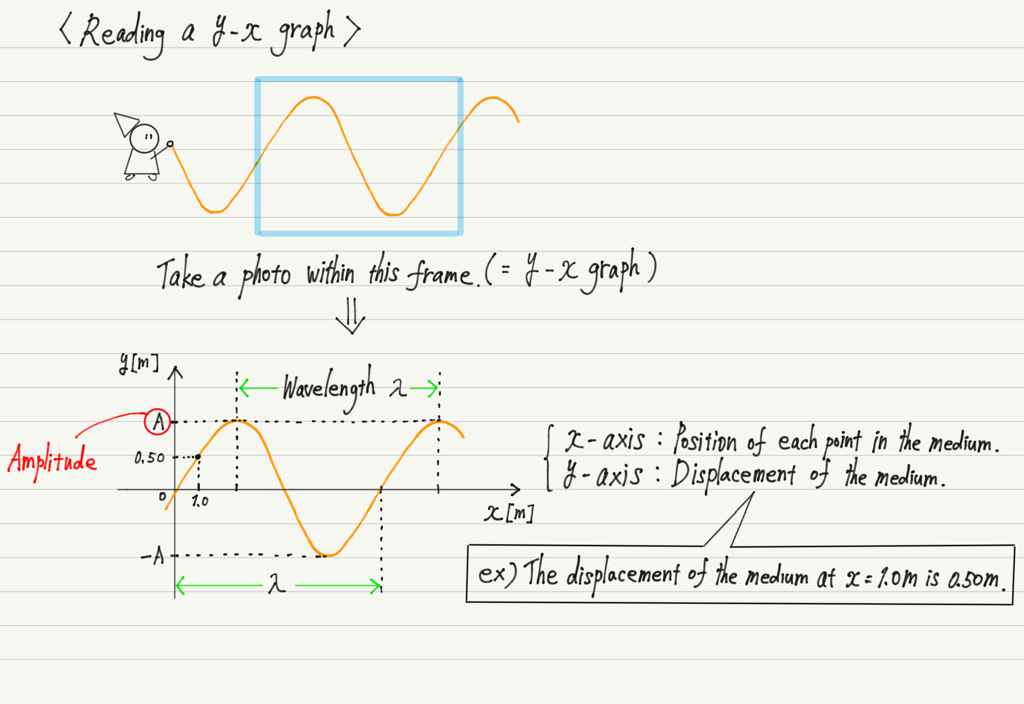 <Reading a y-x graph>
Take a photo within this frame. (= y-x graph)
⇓
y[m]
Wavelength λ
A
Amplitude
0.50
0
1.0
x[m]
-A
λ
x-axis : Position of each point in the medium.
y-axis : Displacement of the medium.
ex) The displacement of the medium at x = 1.0m is 0.50m.